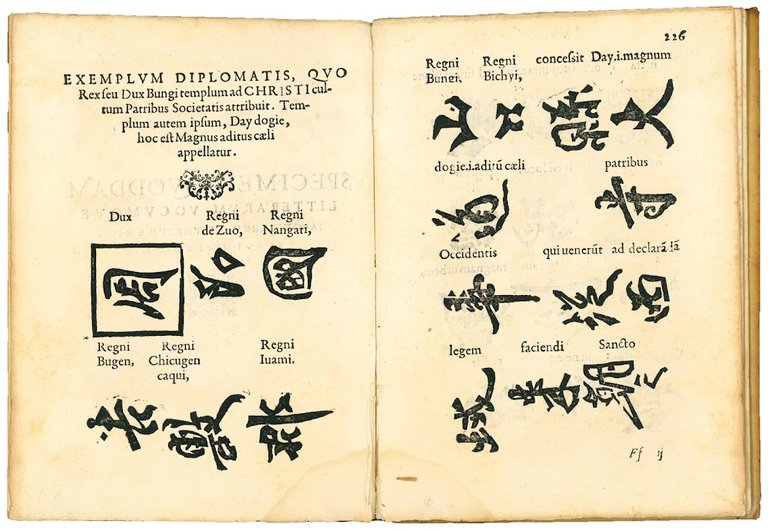 EXEMPLVM DIPLOMATIS, QVO
Rex seu Dux Bungi templum ad CHRISTI cul-
tum Patribus Societatis attribuit. Tem-
plum autem ipsum, Day dogie,
hoc est Magnus aditus cæli
appellatur.
Dux Regni de Zuo, Regni Nangati,
周 防 國
Regni Bugen, Regni Chicugen caqui, Regni Iuami,
吉 敷 郡
226
Regni Bungi, Regni Bichyi, concessit Day.i.magnum
山 口 縣 大
dogie.i.aditū cæli patribus
道 寺
Occidentis qui uenerūt ad declarā
事 従 西
legem faciendi Sancto
域 来 朝 之
Ff ij